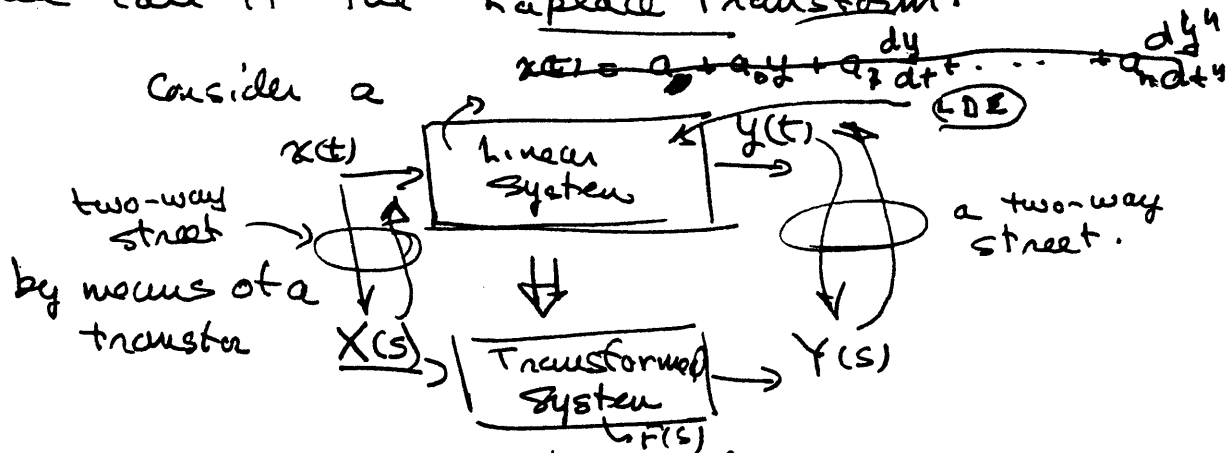 call it the Laplace Transform.
x(t) = a + a₀y + a₁ dy/dt + ..... + aₙ dyⁿ/dtⁿ
Consider a
LDE
x(t)
Linear System
y(t)
two-way street
a two-way street.
by means of a
X(s)
Transformed System
Y(s)
F(s)